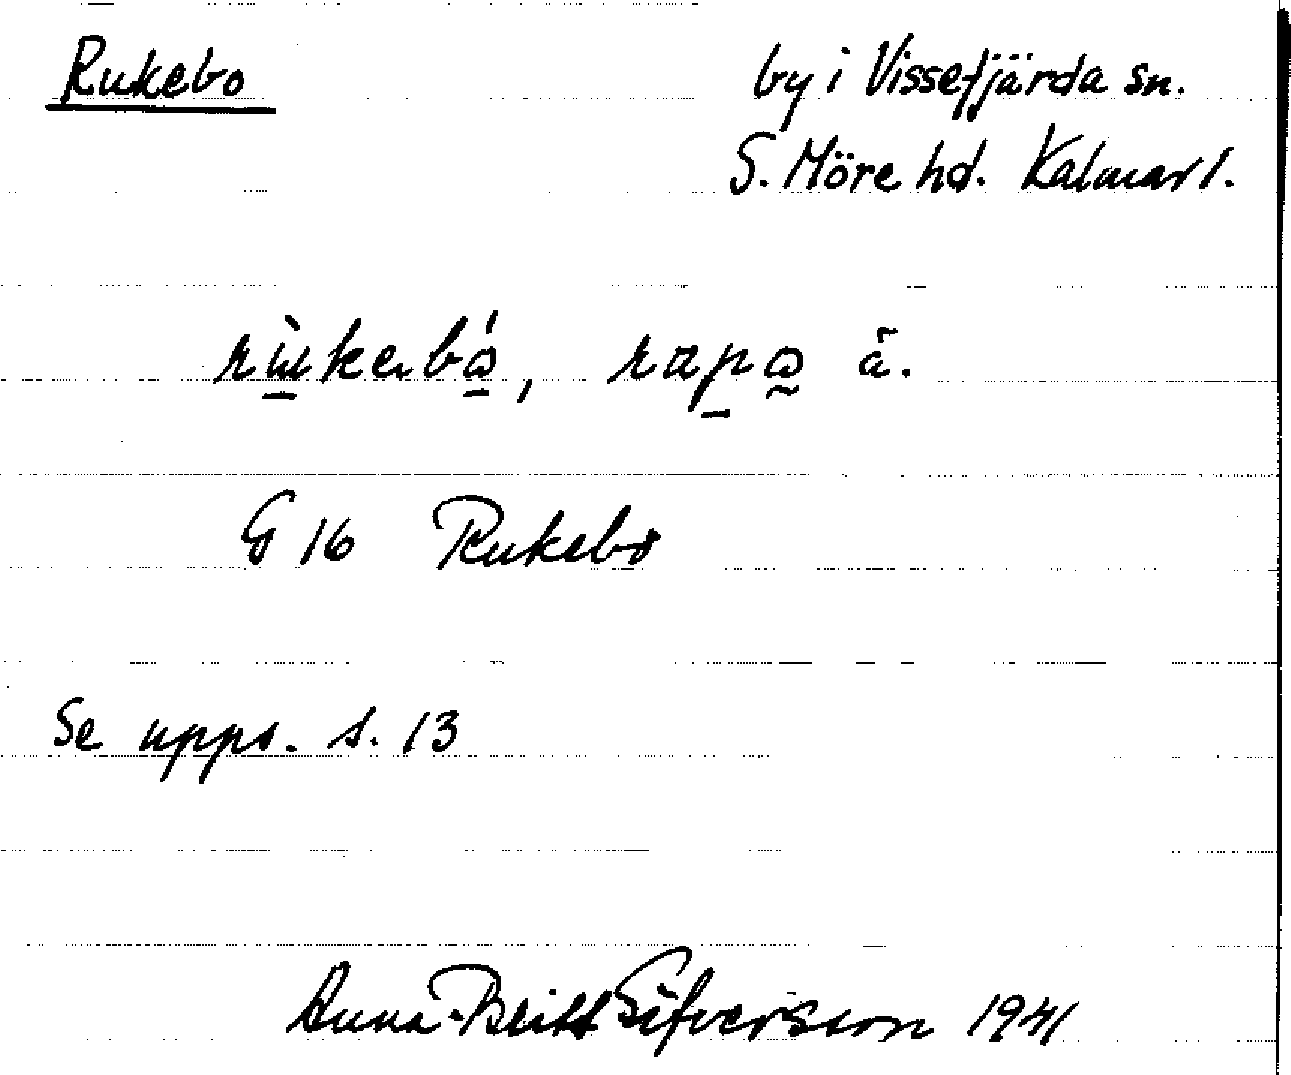 Rukebo
by i Vissefjärda sn.
S. Möre hd. Kalmar l.
rùkebó, rapa ä.
G 16 Rukebo
Se upps. s. 13
Anna-Britt Sifversson 1941